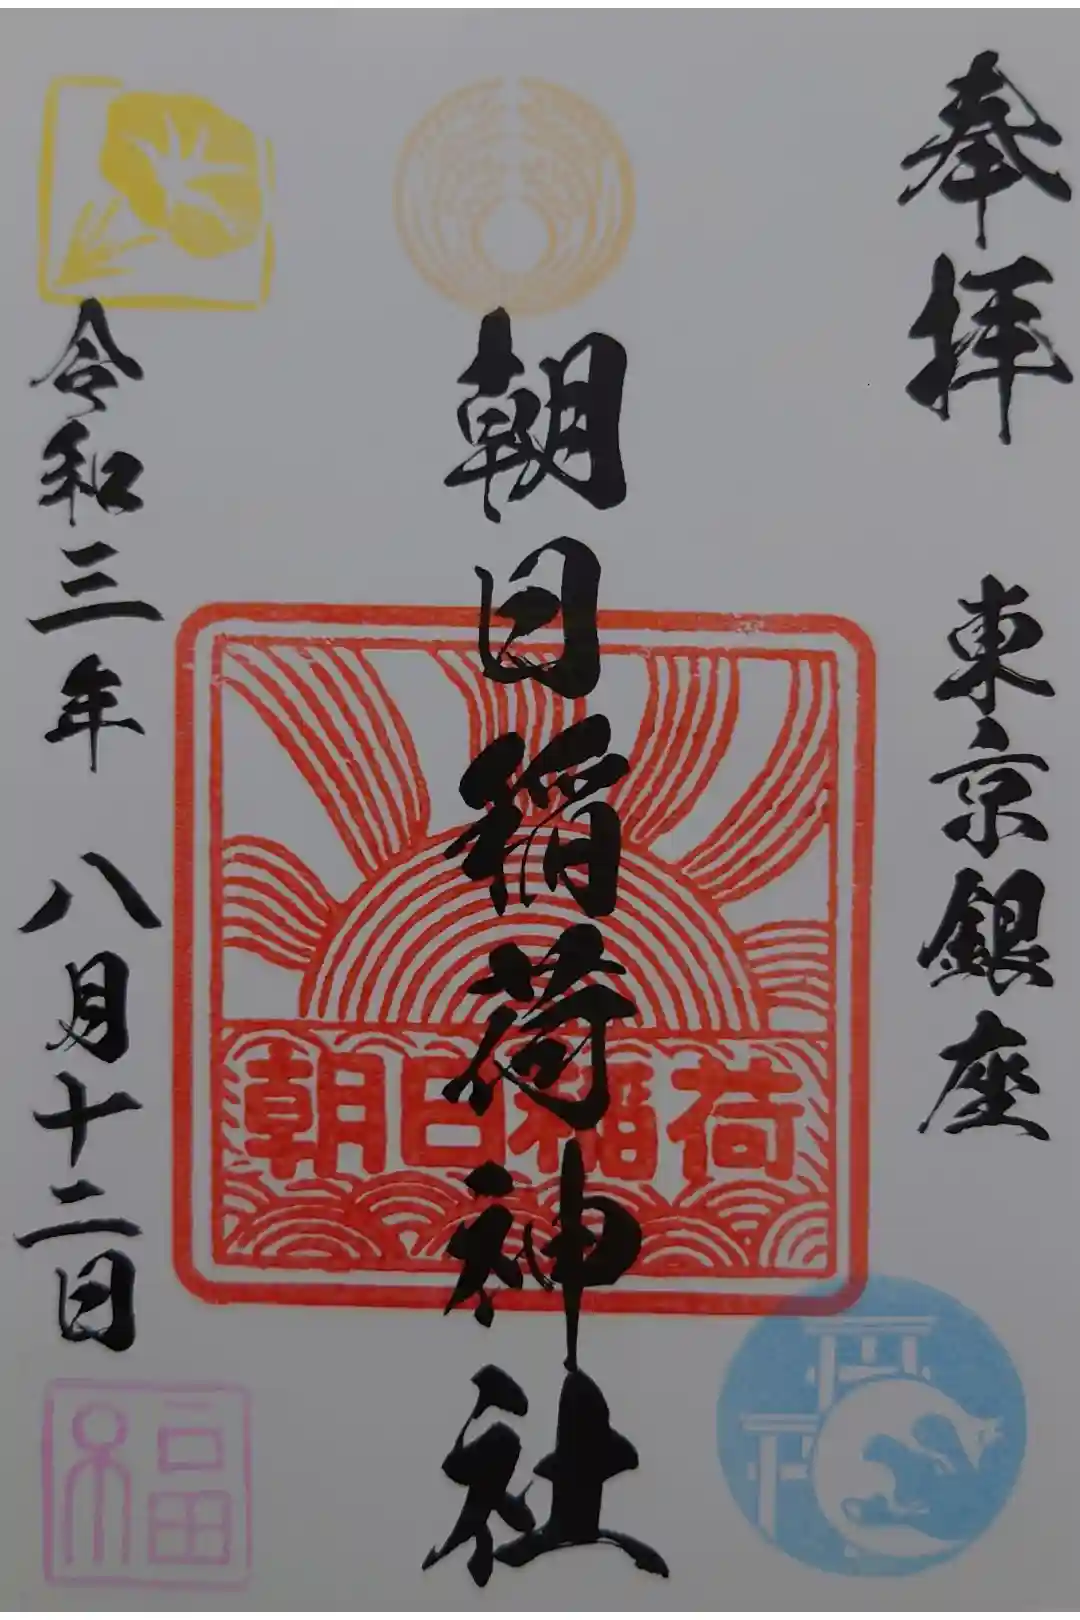 奉拝 東京銀座
朝日稲荷神社
朝日稲荷
令和三年 八月十二日
福